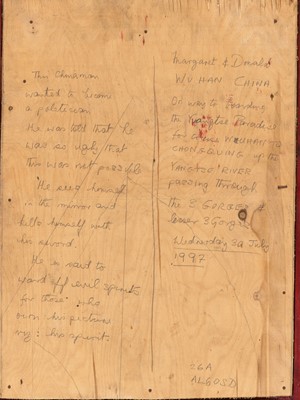 This Chinaman
wanted to become
a politician
He was told that he
was so ugly that
this was not possible
He sees himself
in the mirror and
kills himself with
his sword.
He is said to
ward off evil spirits
for those who
own his picture
viz: his spirit.
Margaret & Donald
WUHAN CHINA
On way to boarding
the Paradise
for cruise WUHAN to
CHONGQUING up the
YANGTSE RIVER
passing through
The 3 GORGES &
lesser 3 Gorges
Wednesday 30 July
1997